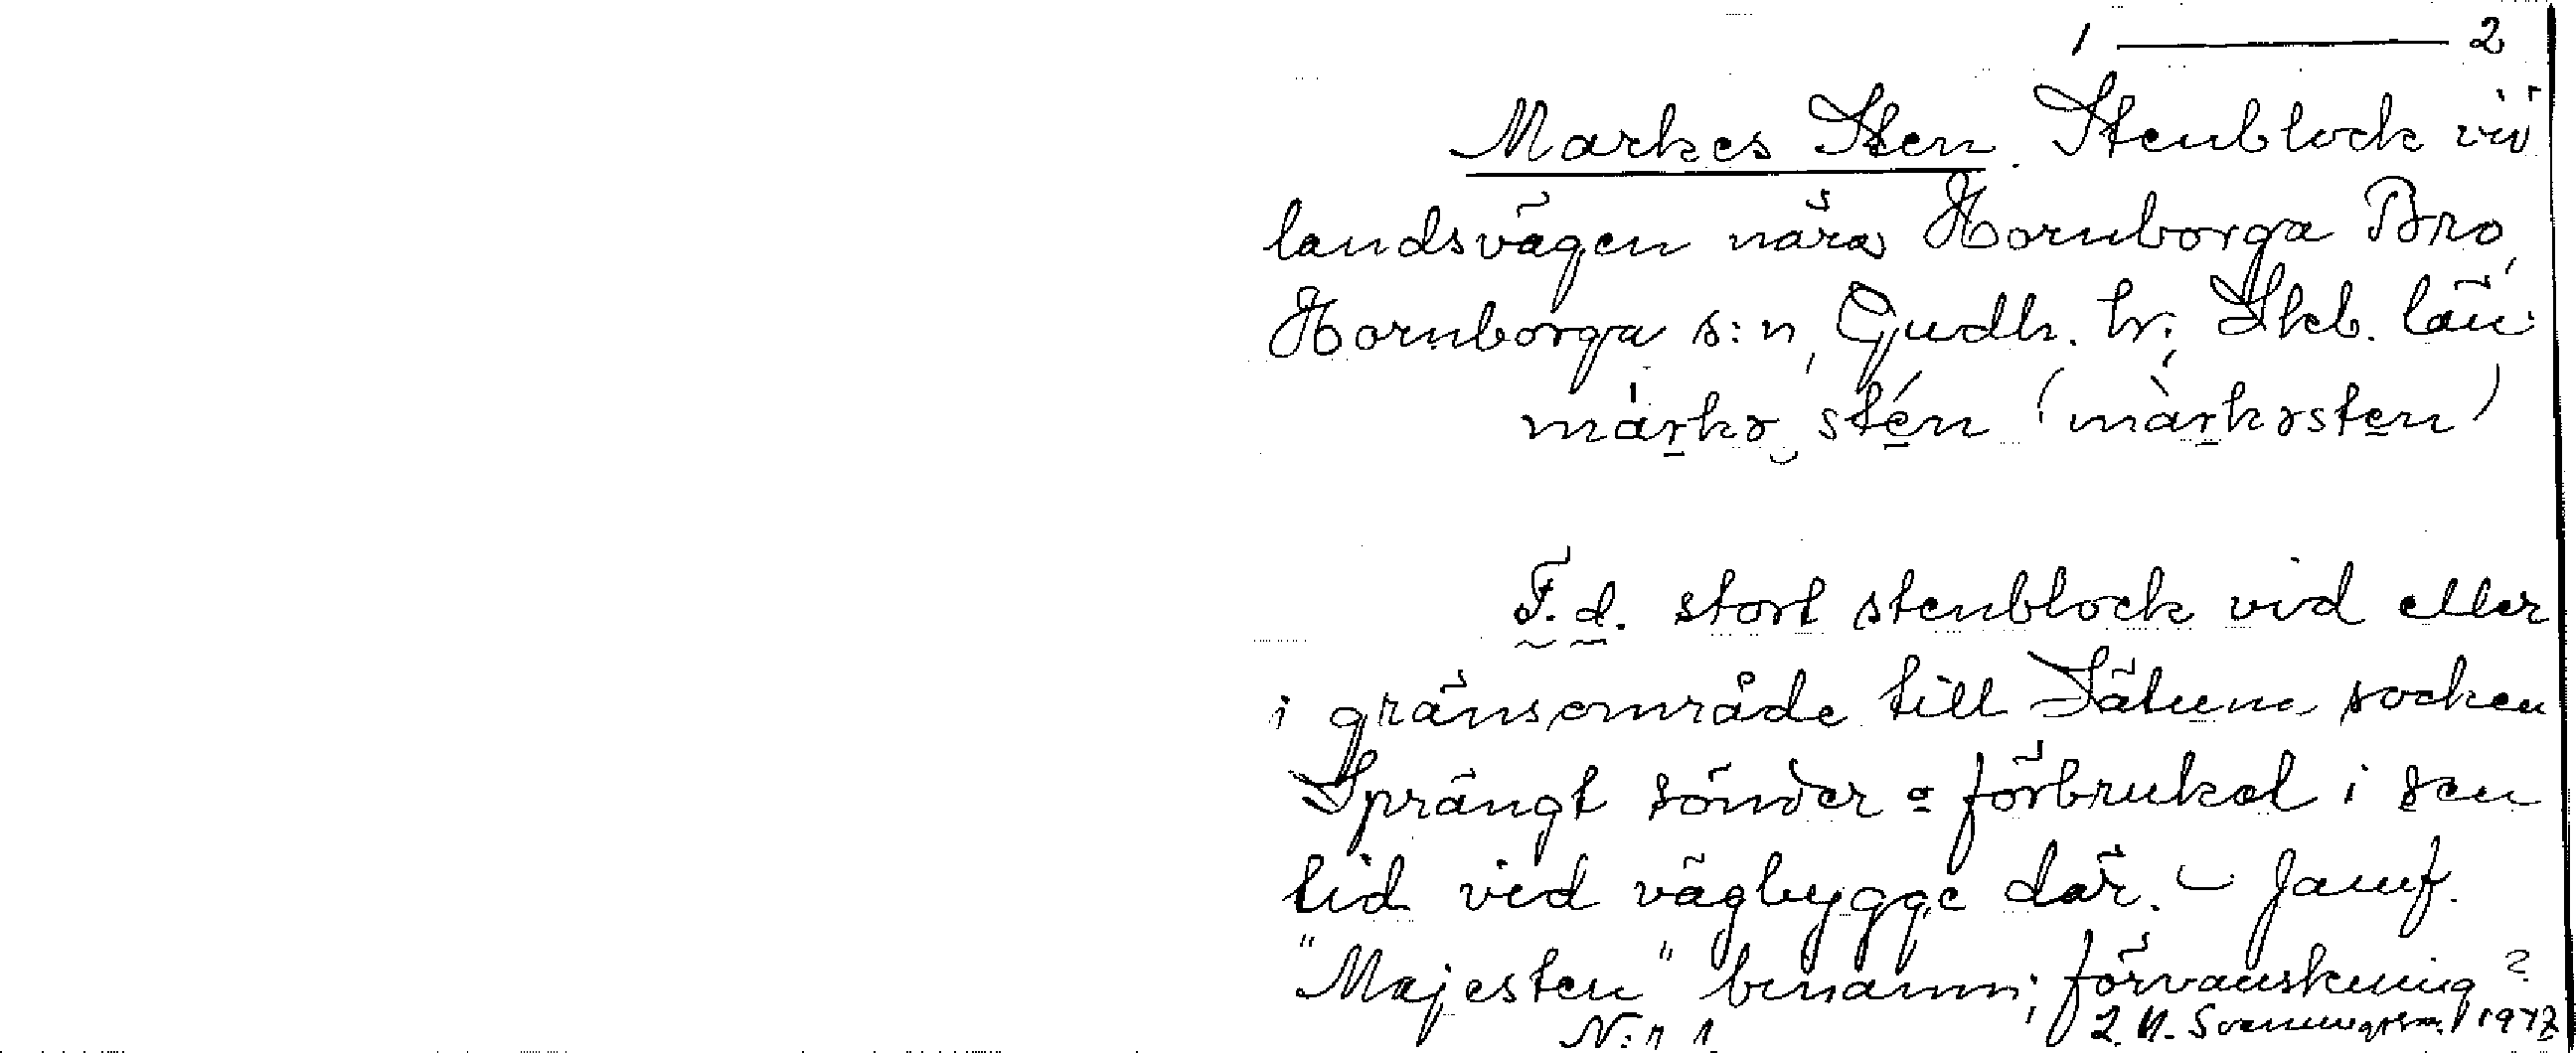 1 — 2
Markes Sten. Stenblock vid
landsvägen nära Hornborga Bro,
Hornborga s:n, Gudh. hr; Skb. län
márkɤ stén (màrkɤsten)
F.d. stort stenblock vid eller
i gränsområde till Sätuna socken
Sprängt sönder o förbrukat i sen
tid vid vägbygge där. – Jämf.
"Majesten" benämn; förvanskning?
N:r 1